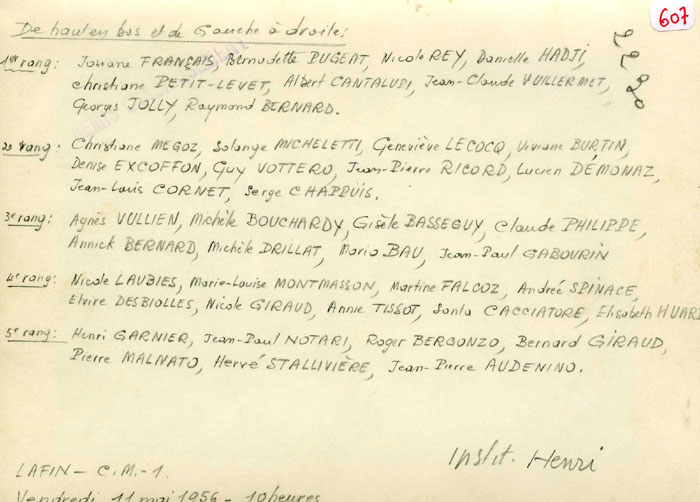 607
22 920
De haut en bas et de Gauche à droite:
1er rang: Josiane FRANÇAIS, Bernadette DUGEAT, Nicole REY, Danielle HADJI,
Christiane PETIT-LEVET, Albert CANTALUPI, Jean-Claude VUILLERMET,
Georges JOLLY, Raymond BERNARD.
2e rang: Christiane MEGOZ, Solange MICHELETTI, Geneviève LECOCQ, Viviane BURTIN,
Denise EXCOFFON, Guy VOTTERO, Jean-Pierre RICORD, Lucien DÉMONAZ,
Jean-Louis CORNET, Serge CHAPPUIS.
3e rang: Agnès VULLIEN, Michèle BOUCHARDY, Gisèle BASSEGUY, Claude PHILIPPE,
Annick BERNARD, Michèle DRILLAT, Mario BAU, Jean-Paul GABOURIN
4e rang: Nicole LAUBIES, Marie-Louise MONTMASSON, Martine FALCOZ, Andrée SPINACE,
Elvire DESBIOLLES, Nicole GIRAUD, Annie TISSOT, Santa CACCIATORE, Elisabeth HUARD
5e rang: Henri GARNIER, Jean-Paul NOTARI, Roger BERGONZO, Bernard GIRAUD,
Pierre MALNATO, Hervé STALLIVIÈRE, Jean-Pierre AUDENINO.
Instit. Henri
LAFIN - C.M.-1.
Vendredi 11 mai 1956 - 10 heures